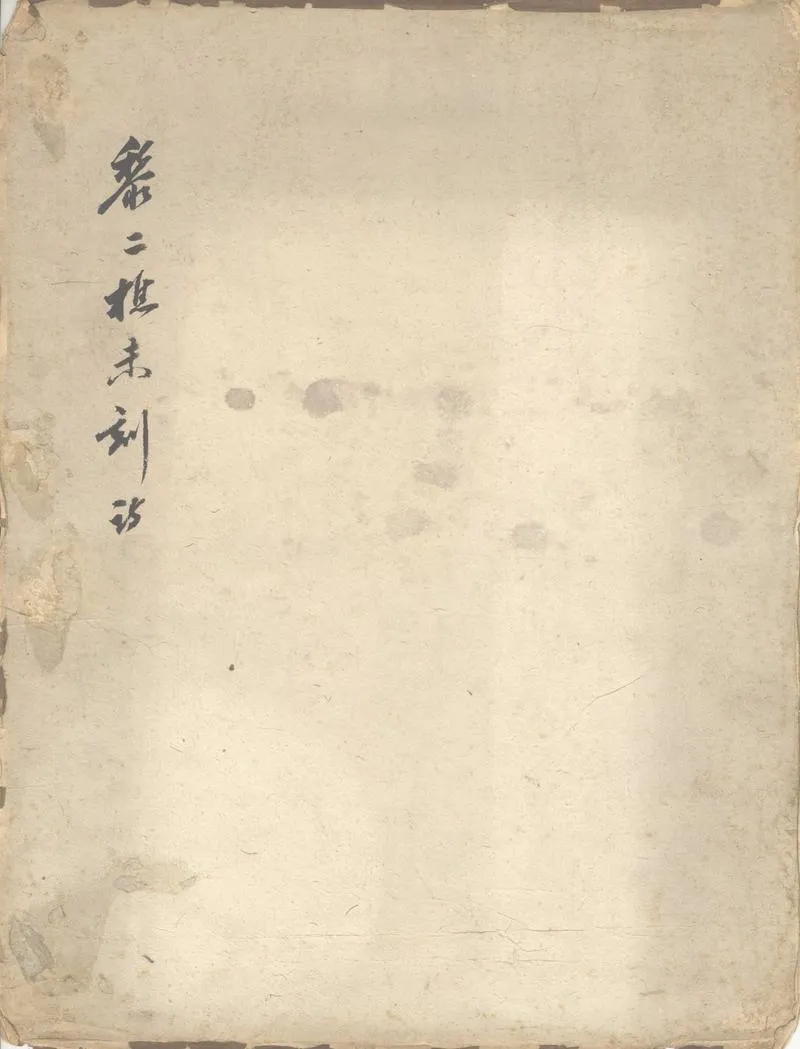 黎二樵未刻詩